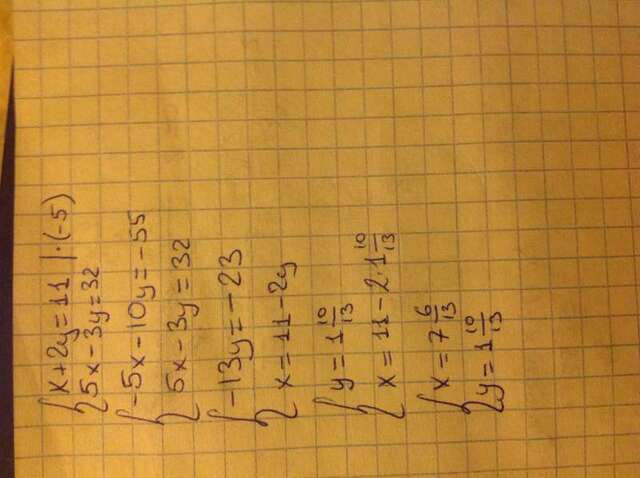 {x+2y=11 |·(-5)
5x-3y=32
{-5x-10y=-55
5x-3y=32
{-13y=-23
x=11-2y
{y=1 10/13
x=11-2·1 10/13
{x=7 6/13
y=1 10/13